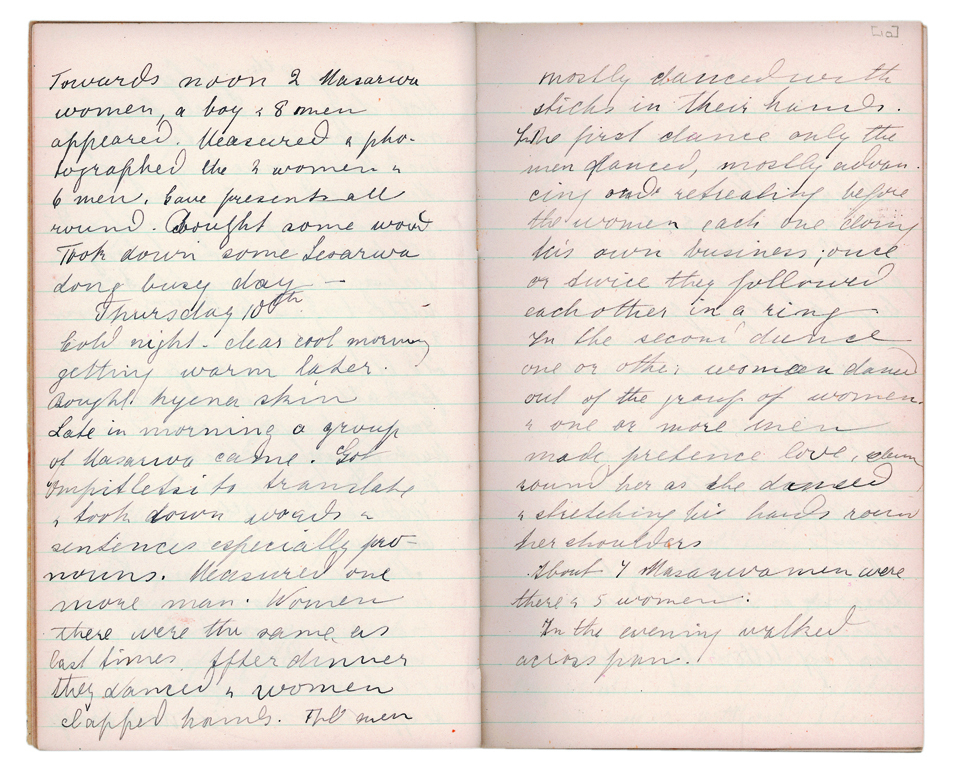 Towards noon 2 Masarwa
women, a boy & 8 men
appeared. Measured & pho-
tographed the 2 women &
6 men. Gave presents all
round. Bought some wood
Took down some Sesarwa
dong busy day —
Thursday 10th
Cold night - clear cool morning
getting warm later.
Bought hyena skin
Late in morning a group
of Masarwa came. Got
to translate
& took down words &
sentences especially pro-
nouns. Measured one
more man. Women
there were the same as
last times. After dinner
they danced & women
clapped hands. The men
[10]
mostly danced with
sticks in their hands.
In the first dance only the
men danced, mostly advan-
cing and retreating before
the women each one doing
his own business; once
or twice they followed
eachother in a ring
In the second dance
one or other woman danced
out of the group of women.
& one or more men
made pretence love,
round her as she danced
& stretching his hands roun
her shoulders
About 7 Masarwa men were
there & 5 women.
In the evening walked
across pan.